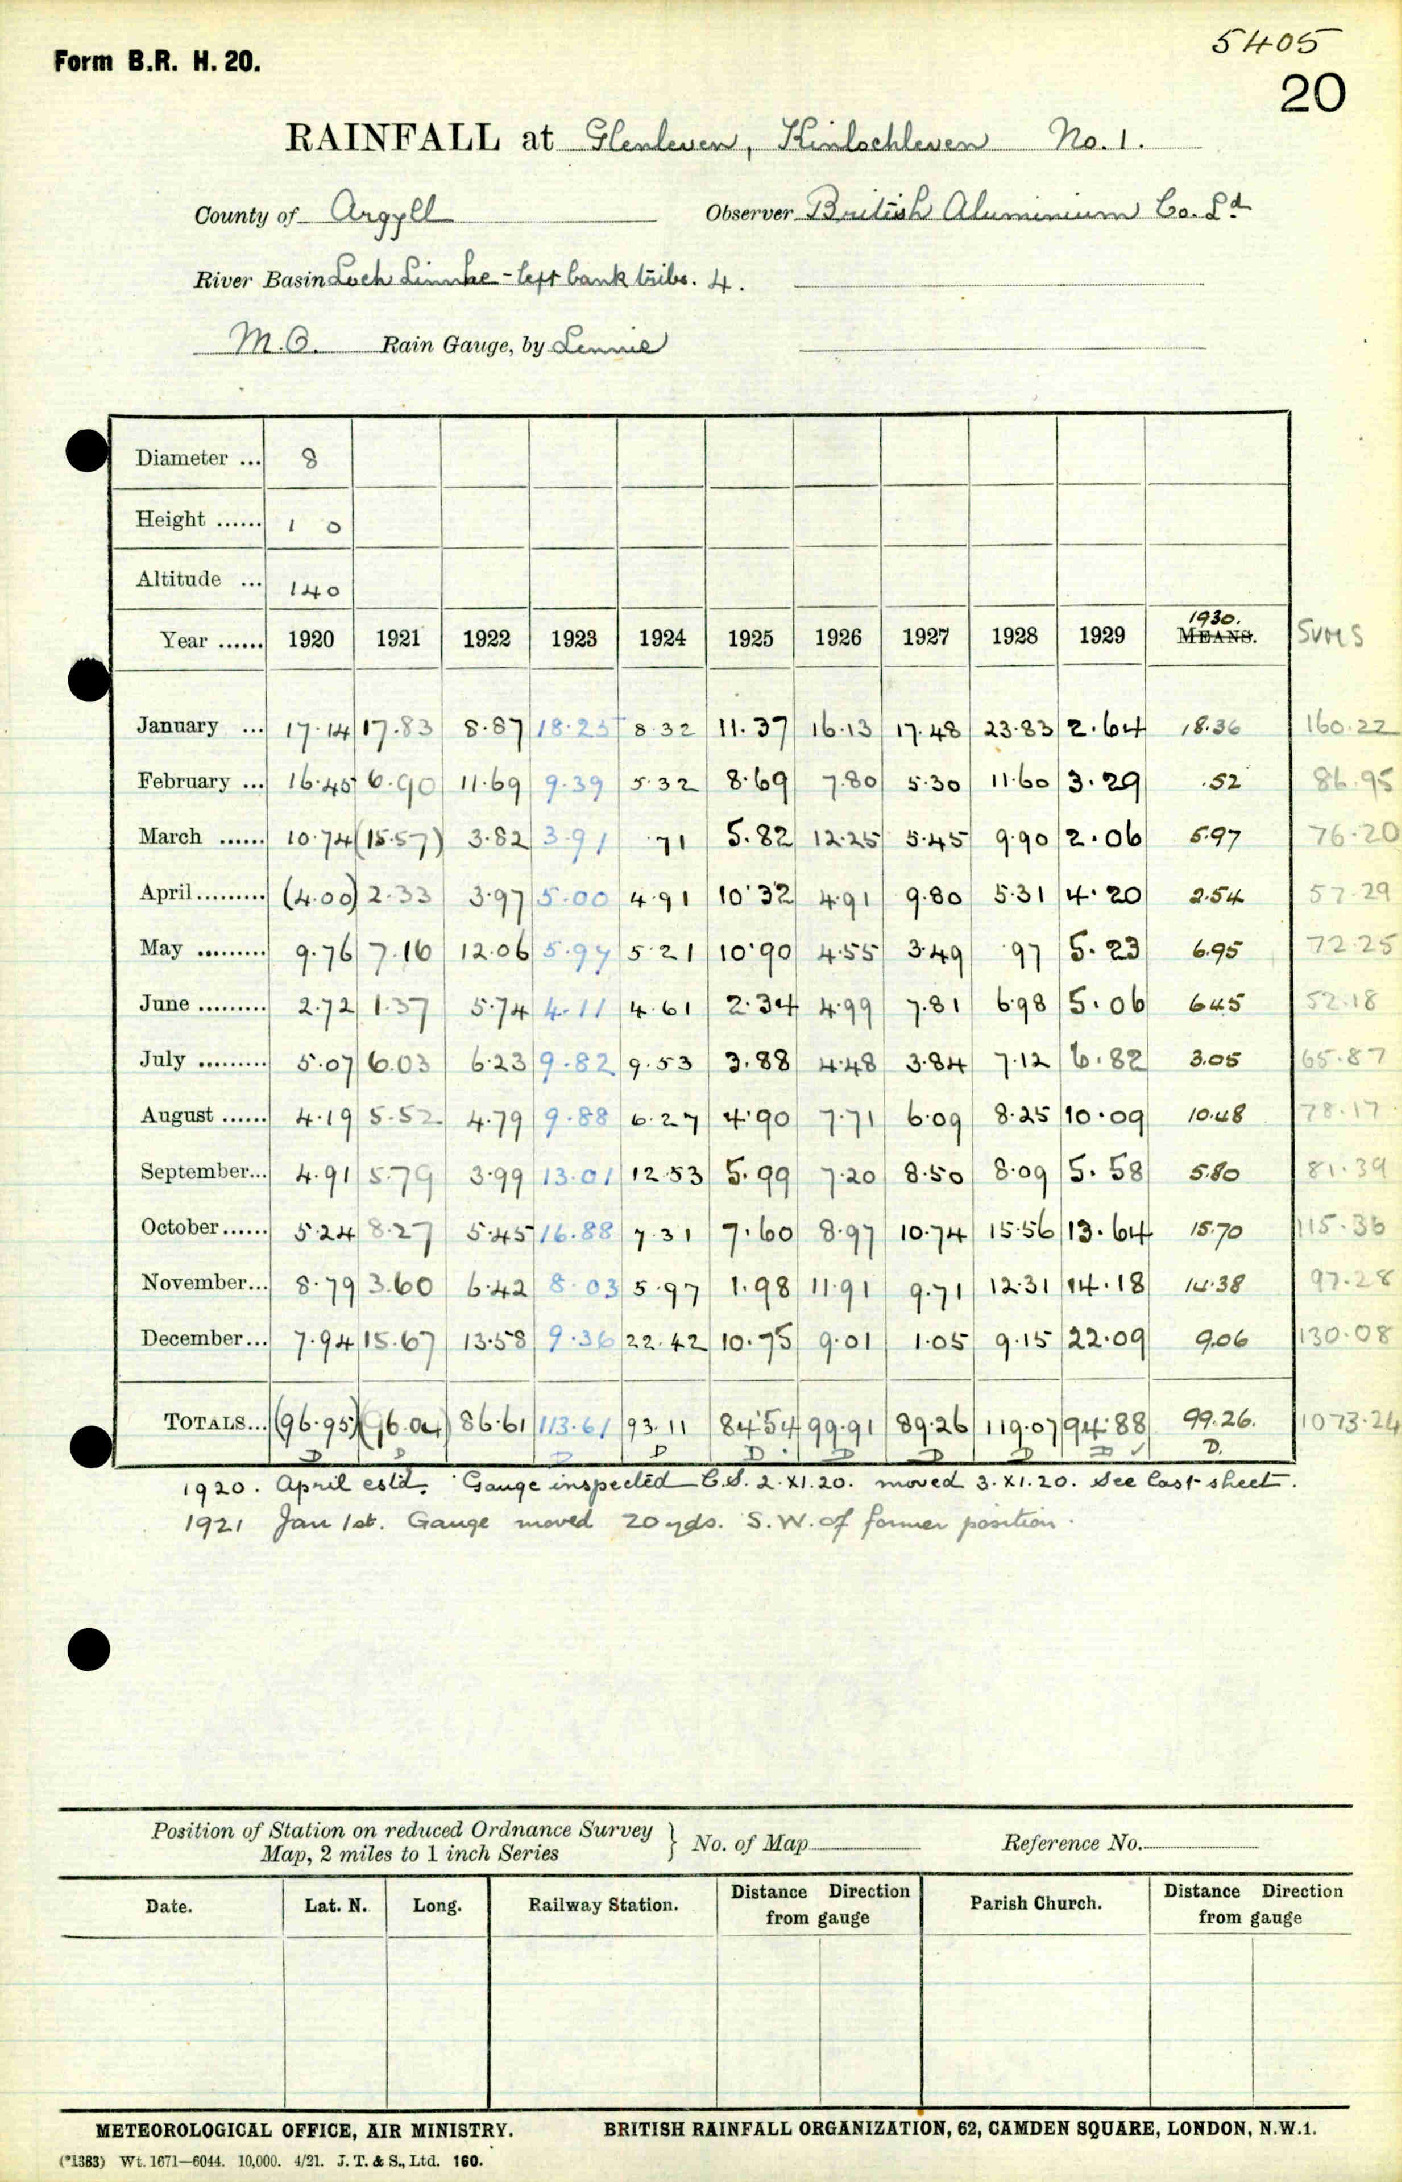 5405
Form B.R. H. 20.
20
RAINFALL at Glenleven, Kinlochleven No. 1.
County of Argyll Observer British Aluminium Co. Ld
River Basin Loch Linnhe - left bank tribs. 4.
M.O. Rain Gauge, by Lennie
Diameter ... 8
Height ...... 1 0
Altitude ... 140
1930.
Year ...... 1920 1921 1922 1923 1924 1925 1926 1927 1928 1929 MEANS. SUMS
January ... 17.14 17.83 8.87 18.25 8.32 11.37 16.13 17.48 23.83 2.64 18.36 160.22
February ... 16.45 6.90 11.69 9.39 5.32 8.69 7.80 5.30 11.60 3.29 .52 86.95
March ...... 10.74 (15.57) 3.82 3.91 .71 5.82 12.25 5.45 9.90 2.06 5.97 76.20
April......... (4.00) 2.33 3.97 5.00 4.91 10.32 4.91 9.80 5.31 4.20 2.54 57.29
May ......... 9.76 7.16 12.06 5.97 5.21 10.90 4.55 3.49 .97 5.23 6.95 72.25
June ......... 2.72 1.37 5.74 4.11 4.61 2.34 4.99 7.81 6.98 5.06 6.45 52.18
July ......... 5.07 6.03 6.23 9.82 9.53 3.88 4.48 3.84 7.12 6.82 3.05 65.87
August ...... 4.19 5.52 4.79 9.88 6.27 4.90 7.71 6.09 8.25 10.09 10.48 78.17
September... 4.91 5.79 3.99 13.01 12.53 5.99 7.20 8.50 8.09 5.58 5.80 81.39
October...... 5.24 8.27 5.45 16.88 7.31 7.60 8.97 10.74 15.56 13.64 15.70 115.36
November... 8.79 3.60 6.42 8.03 5.97 1.98 11.91 9.71 12.31 14.18 14.38 97.28
December... 7.94 15.67 13.58 9.36 22.42 10.75 9.01 1.05 9.15 22.09 9.06 130.08
TOTALS... (96.95) (96.04) 86.61 113.61 93.11 84.54 99.91 89.26 119.07 94.88 99.26. 1073.24
D D D D D D D D D ✓ D.
1920. April estd. Gauge inspected C.S. 2.XI.20. moved 3.XI.20. See last sheet.
1921 Jan 1st. Gauge moved 20 yds. S.W. of former position.
Position of Station on reduced Ordnance Survey
Map, 2 miles to 1 inch Series } No. of Map Reference No.
Date. Lat. N. Long. Railway Station. Distance Direction from gauge Parish Church. Distance Direction from gauge
METEOROLOGICAL OFFICE, AIR MINISTRY. BRITISH RAINFALL ORGANIZATION, 62, CAMDEN SQUARE, LONDON, N.W.1.
(*1383) Wt. 1671—6044. 10,000. 4/21. J. T. & S., Ltd. 160.